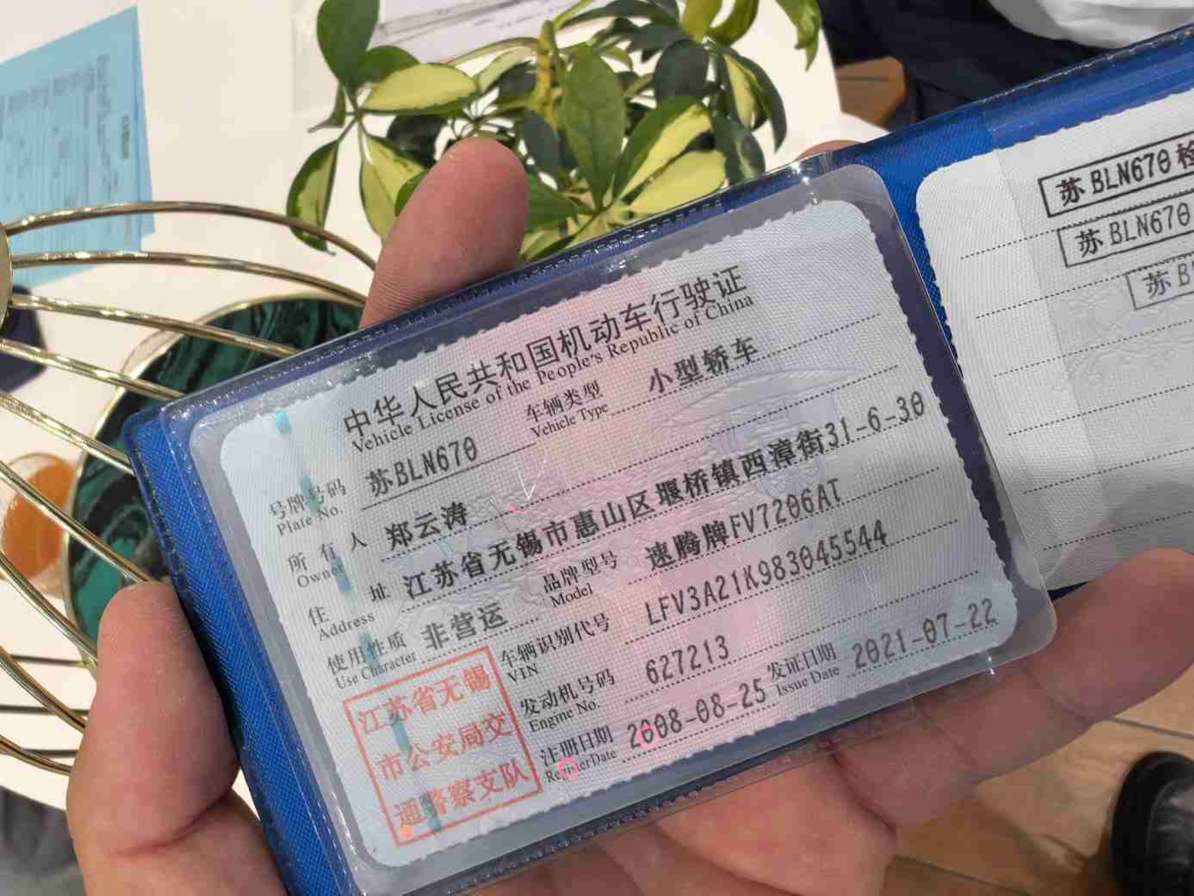 中华人民共和国机动车行驶证
Vehicle License of the People's Republic of China
号牌号码 苏BLN670 车辆类型 小型轿车
Plate No. Vehicle Type
所有人 郑云涛
Owner
住址 江苏省无锡市惠山区堰桥镇西漳街31-6-30
Address
使用性质 非营运 品牌型号 速腾牌FV7206AT
Use Character Model
车辆识别代号 LFV3A21K983045544
VIN
发动机号码 627213
Engine No.
注册日期 2008-08-25 发证日期 2021-07-22
Register Date Issue Date
江苏省无锡
市公安局交
通警察支队
苏BLN670检
苏BLN670
苏B